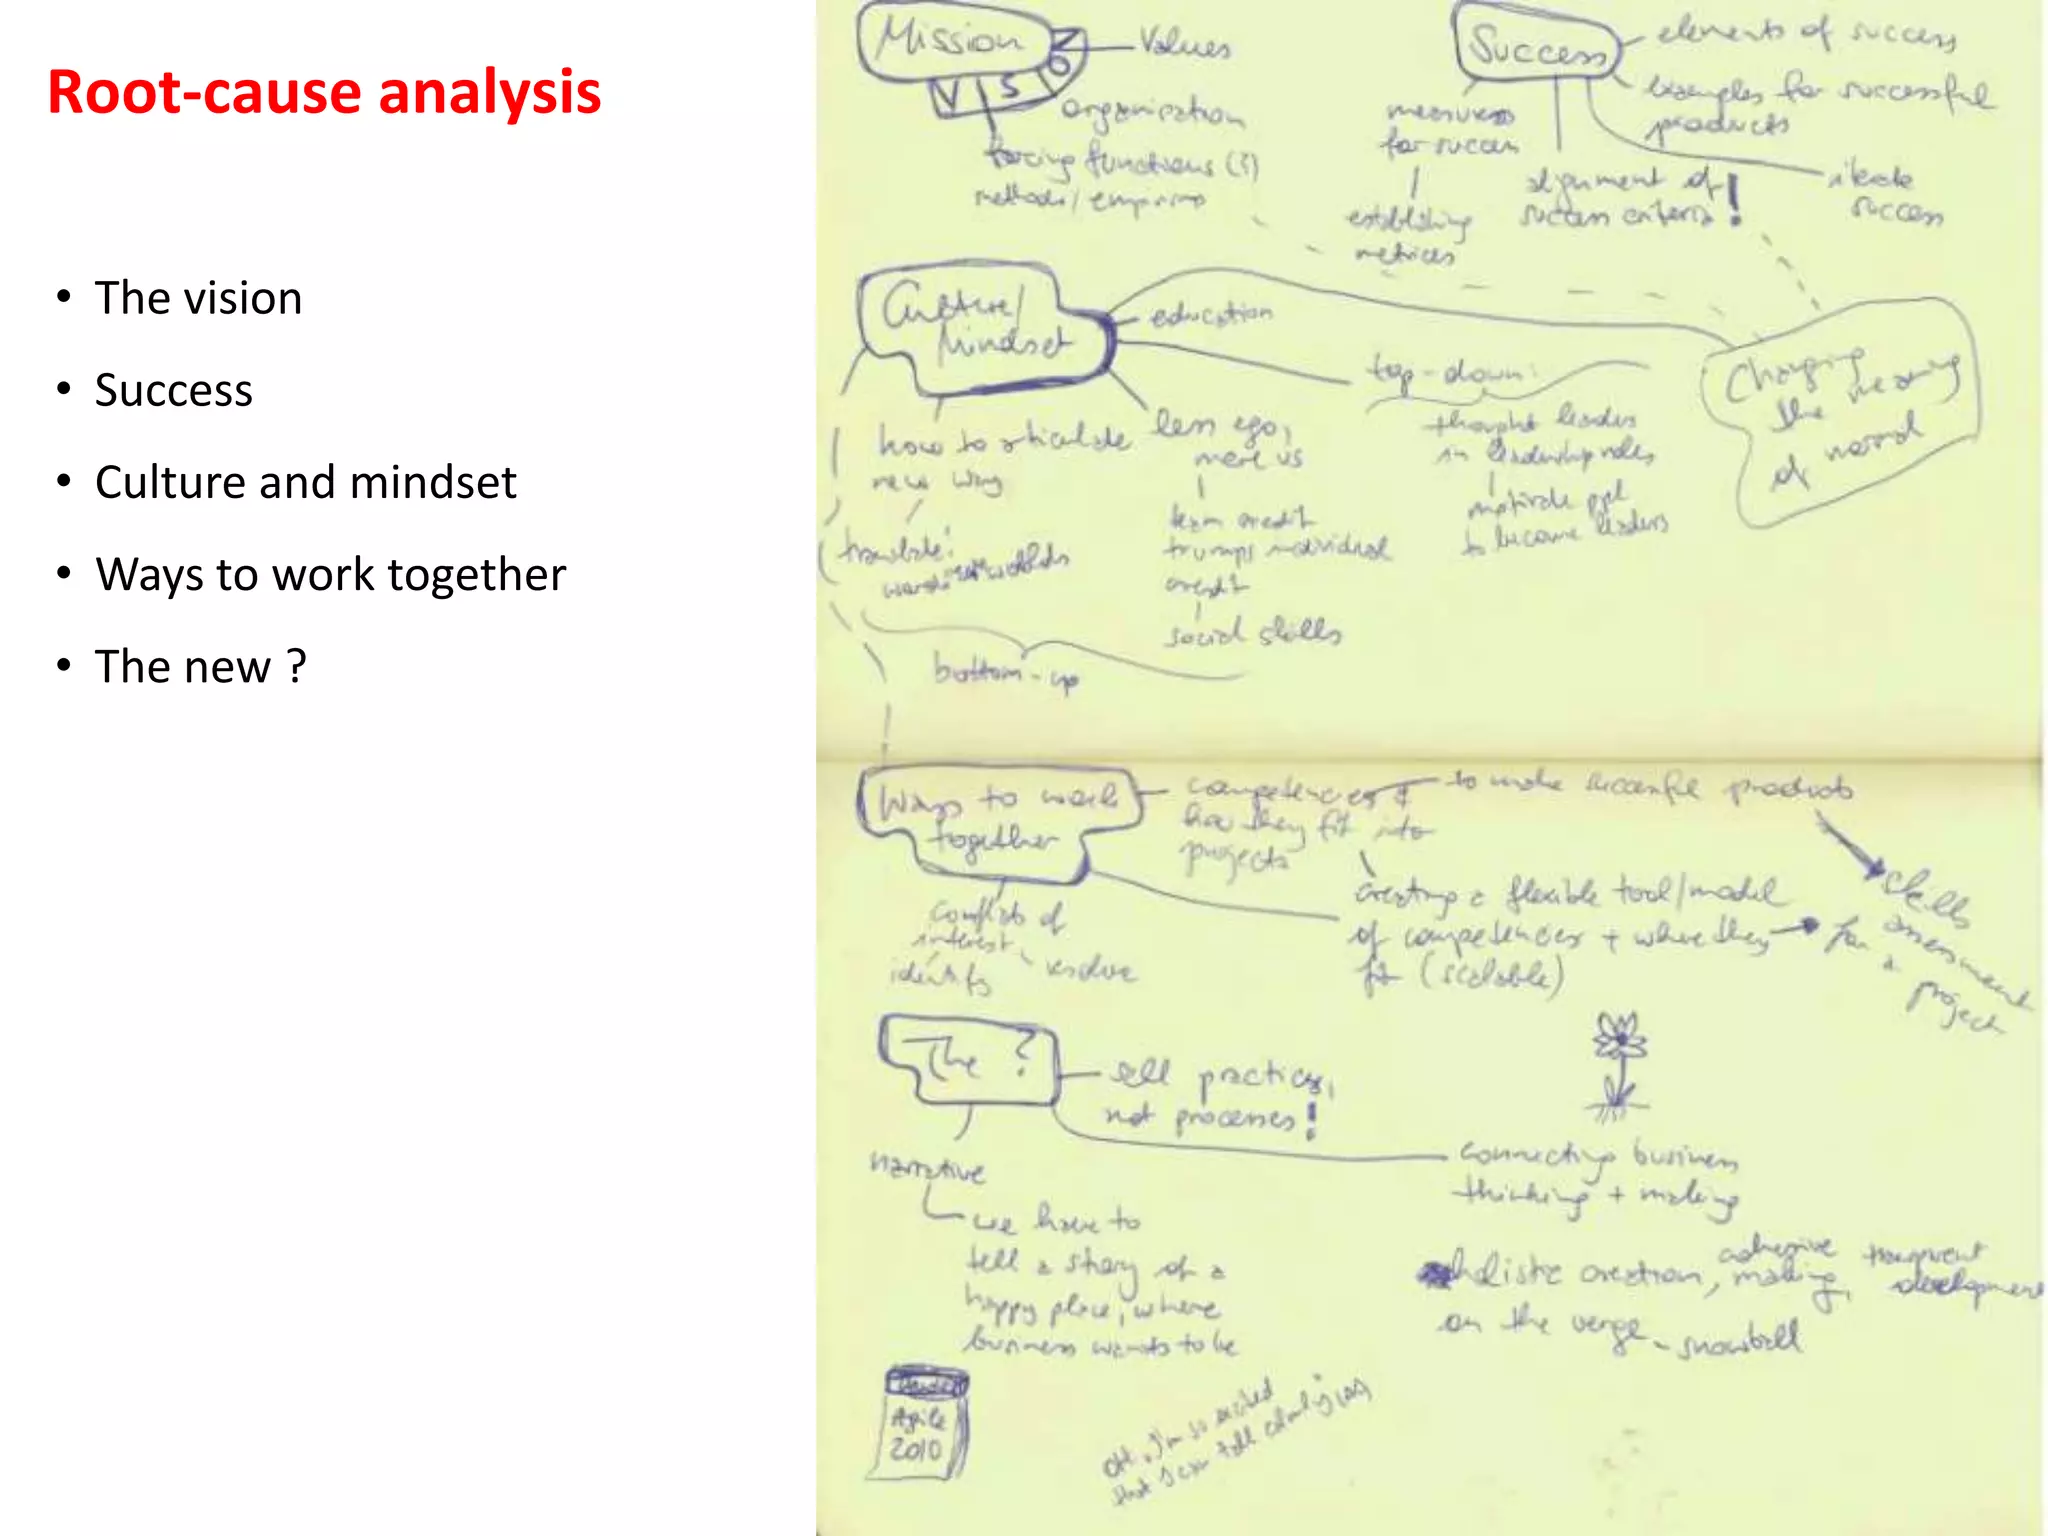 Root-cause analysis
• The vision
• Success
• Culture and mindset
• Ways to work together
• The new ?
Mission
VISION
Values
organization
forcing functions (?)
methods /
Success
elements of success
examples for successful
products
measures
for success
establishing
metrices
alignment of
success criteria !
success
Culture/
Mindset
education
top-down:
thought leaders
in leadership roles
motivate ppl
to become leaders
Changing
the meaning
of normal
how to articulate
new way
translate!
less ego,
more us
team credit
trumps individual
credit
social skills
bottom-up
Ways to work
together
competencies &
how they fit into
projects
to make successful products
creating a flexible tool/model
of competencies + where they
fit (scalable)
skills
assessment
for a project
conflicts of
interest
identify
resolve
The ?
sell practices,
not processes!
narrative
we have to
tell a story of a
happy place, where
business wants to be
connecting business
thinking + making
holistic creation, adhesive making, transparent development
on the verge - snowball
Agile
2010
OH: I'm so excited
that I can talk